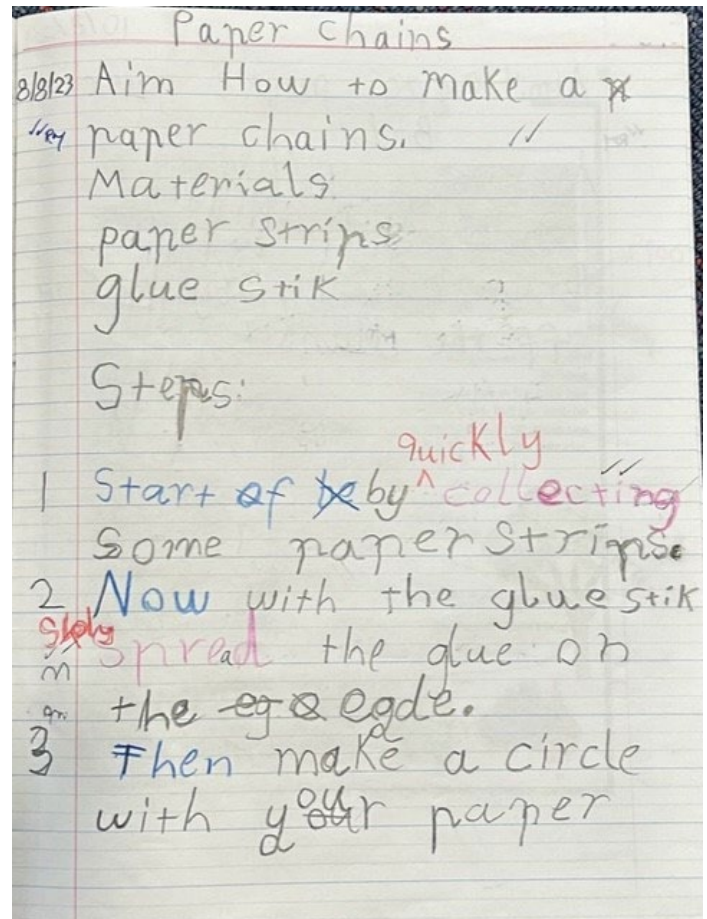 Paper chains
8/8/23 Aim How to make a
paper chains.
Materials
paper strips
glue stik
Steps:
quickly
1 Start of by collecting
Some paper strips.
2 Now with the glue stik
spread the glue on
the egde.
3 Then make a circle
with your paper